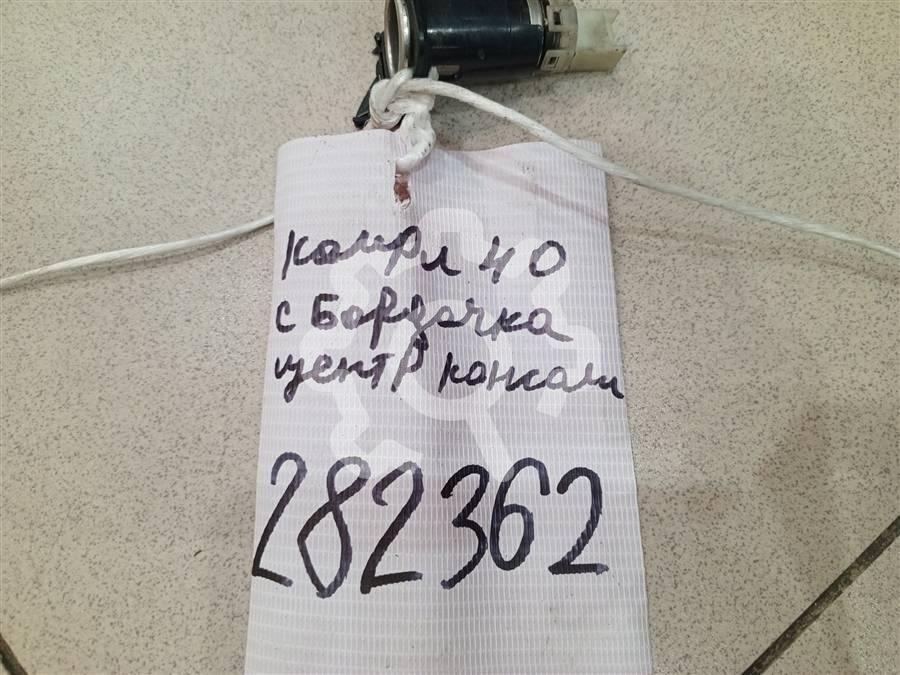 Камрл 40
с Бардачка
центр консоли
282362